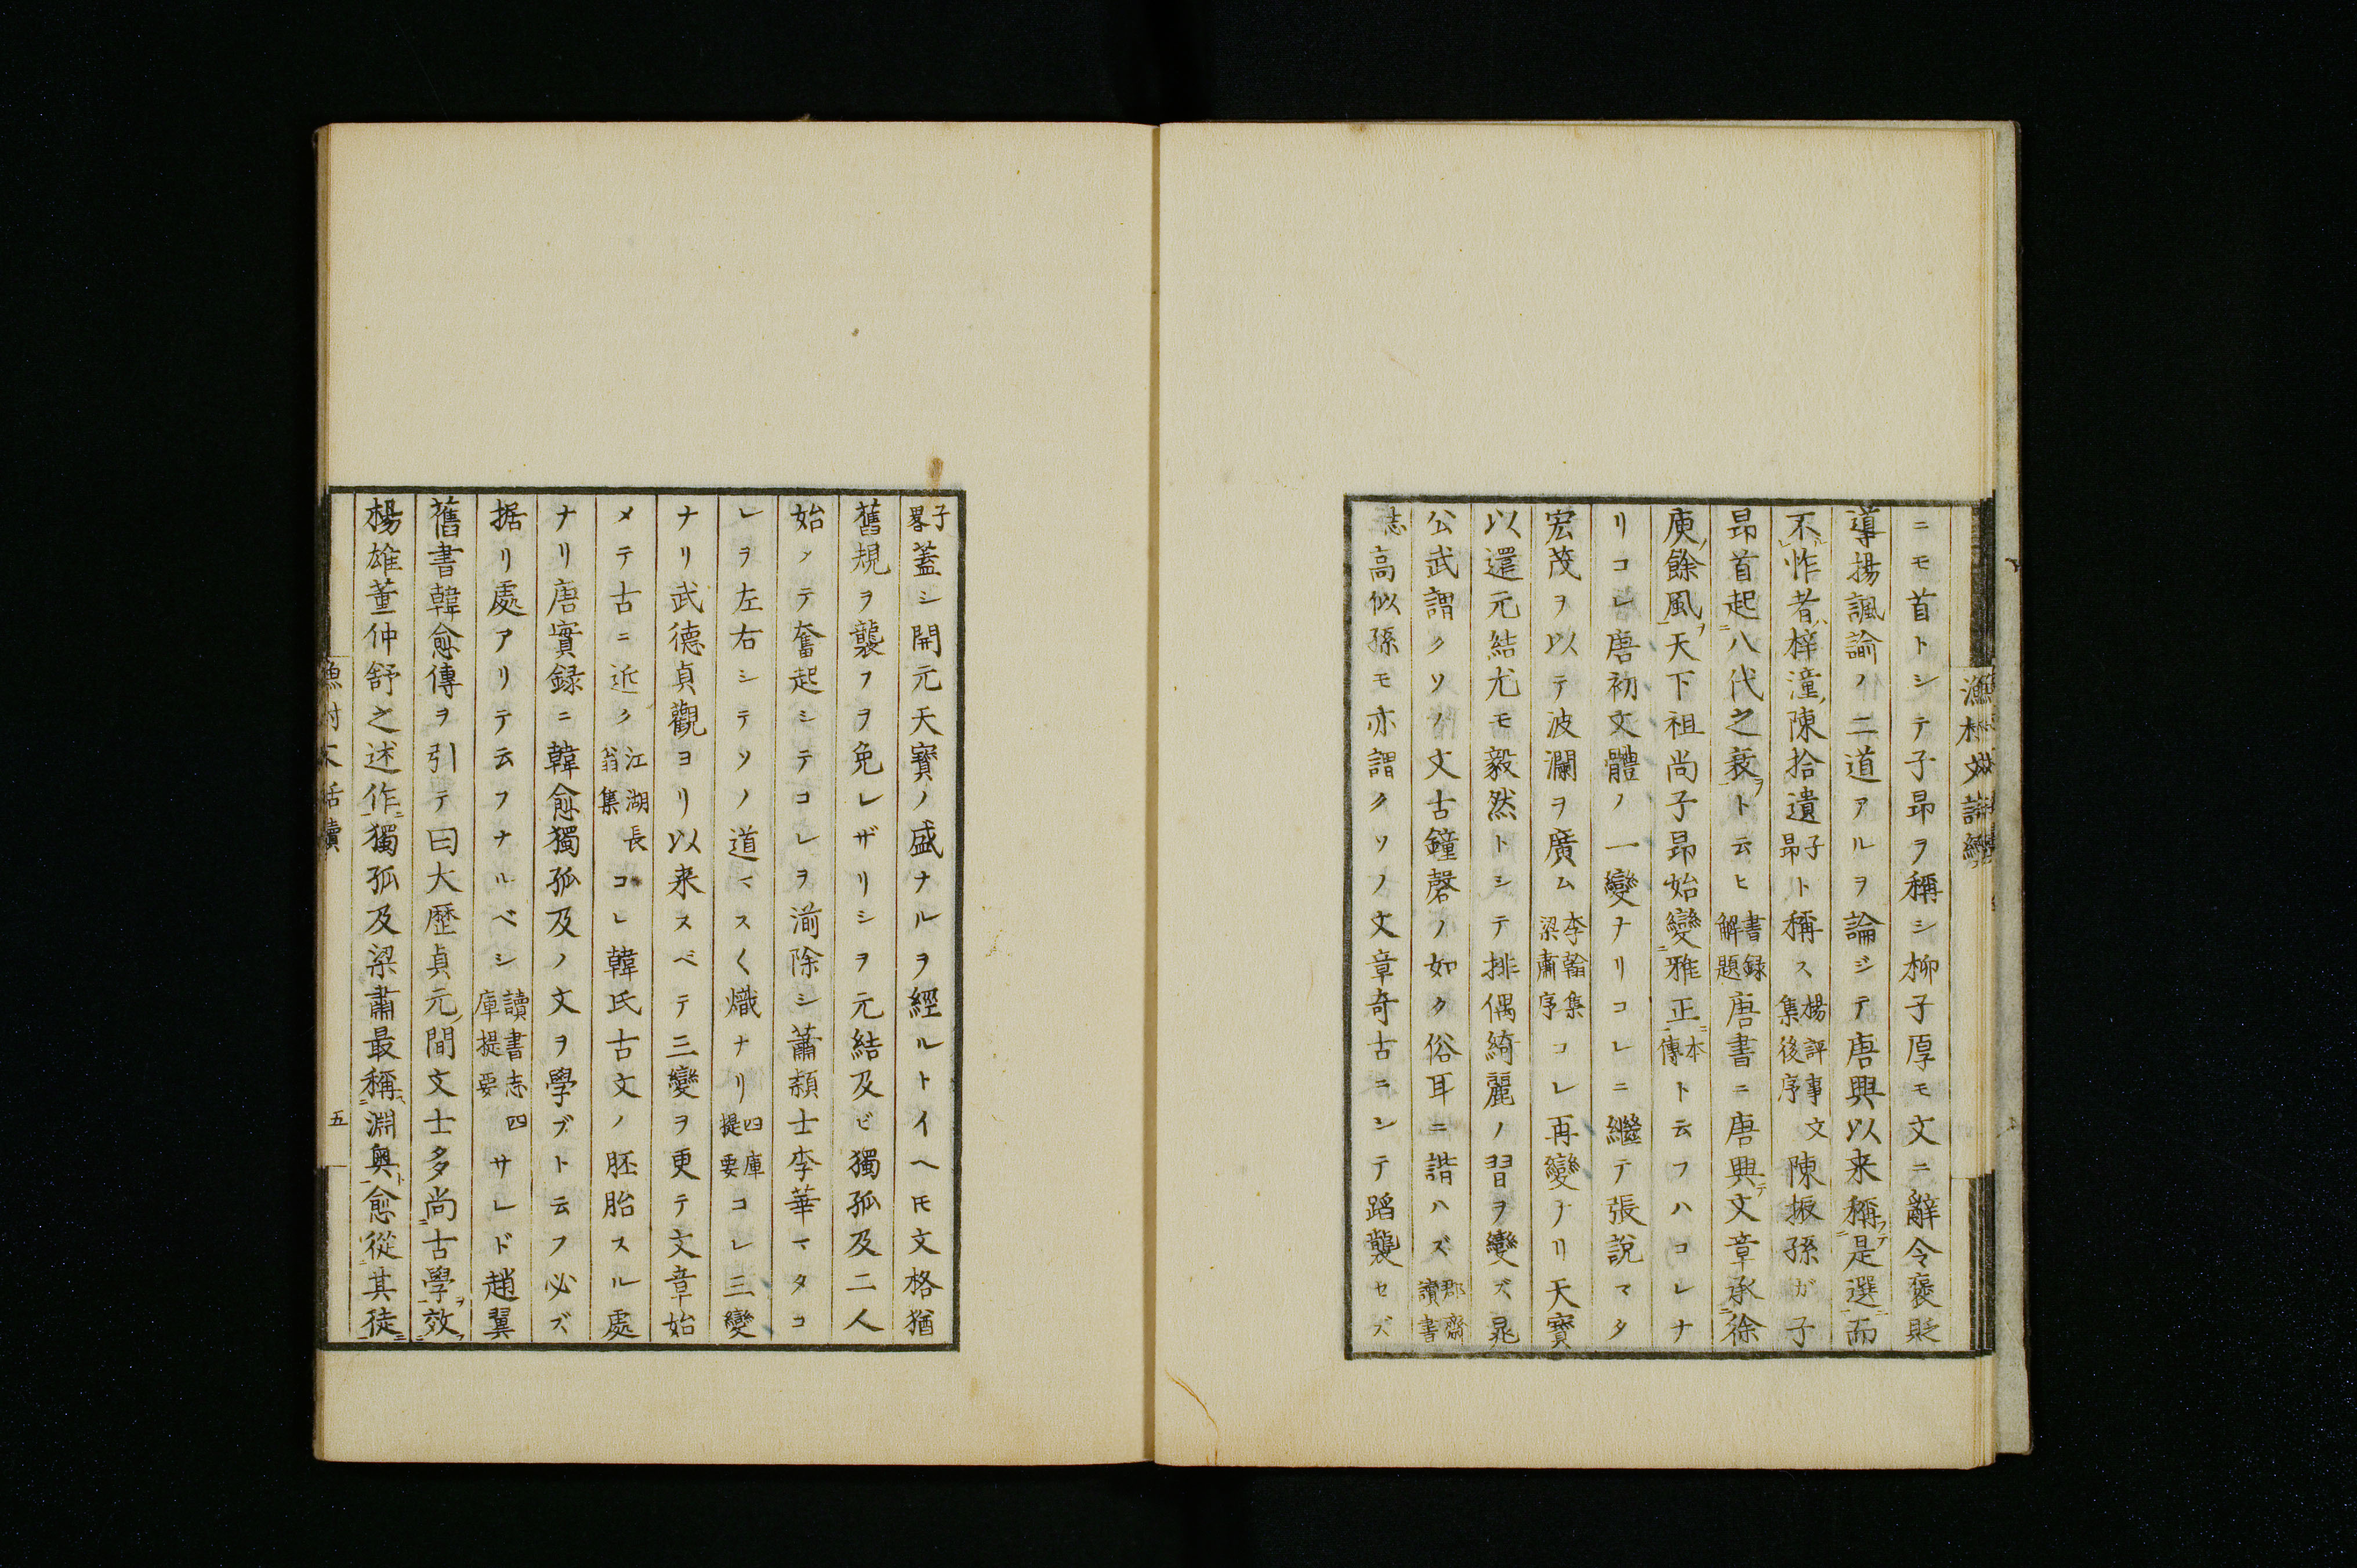 漁村文話續
ニモ首トシテ子昂ヲ稱シ柳子厚モ文ニ辭令褒貶
導揚諷諭ノ二道アルヲ論ジテ唐興以来稱是選而
不怍者梓潼陳拾遺子昂ト稱ス楊評事文集後序陳振孫ガ子
昂首起八代之衰ト云ヒ書録解題唐書ニ唐興文章承徐
庾餘風天下祖尚子昂始變雅正本傳ト云フハコレナ
リコレ唐初文體ノ一變ナリコレニ繼テ張說マタ
宏茂ヲ以テ波瀾ヲ廣ム李翰集梁肅序コレ再變ナリ天寶
以還元結尤モ毅然トシテ排偶綺麗ノ習ヲ變ズ晁
公武謂クソノ文古鐘磬ノ如ク俗耳ニ諧ハズ郡齋讀書
志高似孫モ亦謂クソノ文章奇古ニシテ蹈襲セズ
子畧蓋シ開元天寶ノ盛ナルヲ經ルトイヘㇳモ文格猶
舊規ヲ襲フヲ免レザリシヲ元結及ビ獨孤及二人
始メテ奮起シテコレヲ湔除シ蕭頴士李華マタコ
レヲ左右シテソノ道マス〱熾ナリ四庫提要コレ三變
ナリ武德貞觀ヨリ以来スベテ三變ヲ更テ文章始
メテ古ニ近ク江湖長翁集コレ韓氏古文ノ胚胎スル處
ナリ唐實録ニ韓愈獨孤及ノ文ヲ學ブト云フ必ズ
据リ處アリテ云フナルベシ讀書志四庫提要サレド趙翼
舊書韓愈傳ヲ引テ曰大歷貞元間文士多尚古學效
楊雄董仲舒之述作獨孤及梁肅最稱淵奥愈從其徒
漁村文話續
五